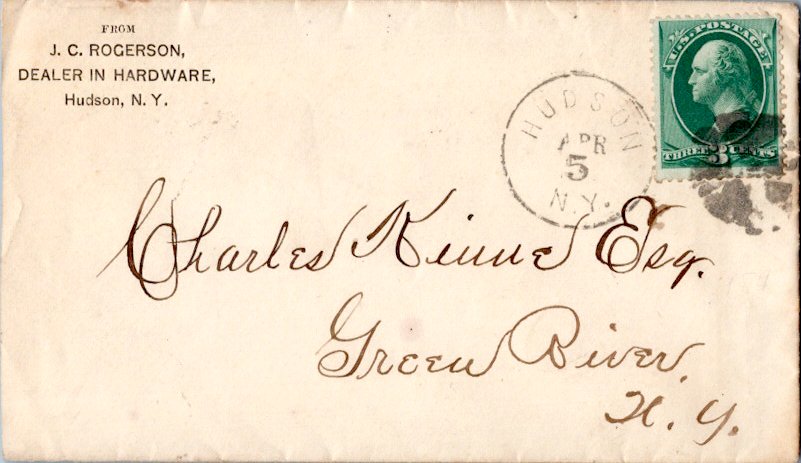 FROM
J. C. ROGERSON,
DEALER IN HARDWARE,
Hudson, N. Y.
U.S. POSTAGE
THREE 3 CENTS
HUDSON
APR
5
N.Y.
Charles Kinne Esq.
Green River
N. Y.